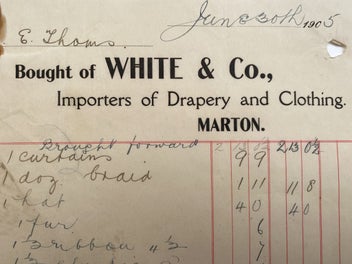 June 30th 1905
E. Thoms.
Bought of WHITE & Co.,
Importers of Drapery and Clothing.
MARTON.
Brought forward 2 13 0½ 2 13 0½
1 curtains 9 9
1 doz braid 1 11 11 8
1 hat 4 0 4 0
1 fur 6
1½ ribbon "½ 7
1½